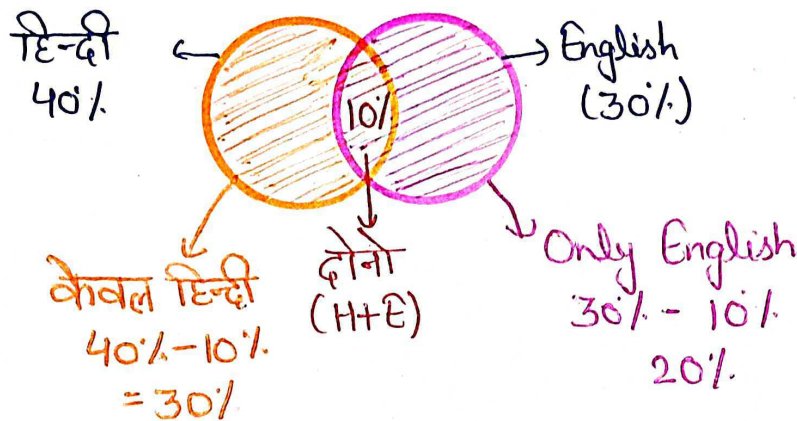 हिन्दी
40%
English
(30%)
10%
दोनो
(H+E)
केवल हिन्दी
40%-10%
= 30%
Only English
30% - 10%
20%